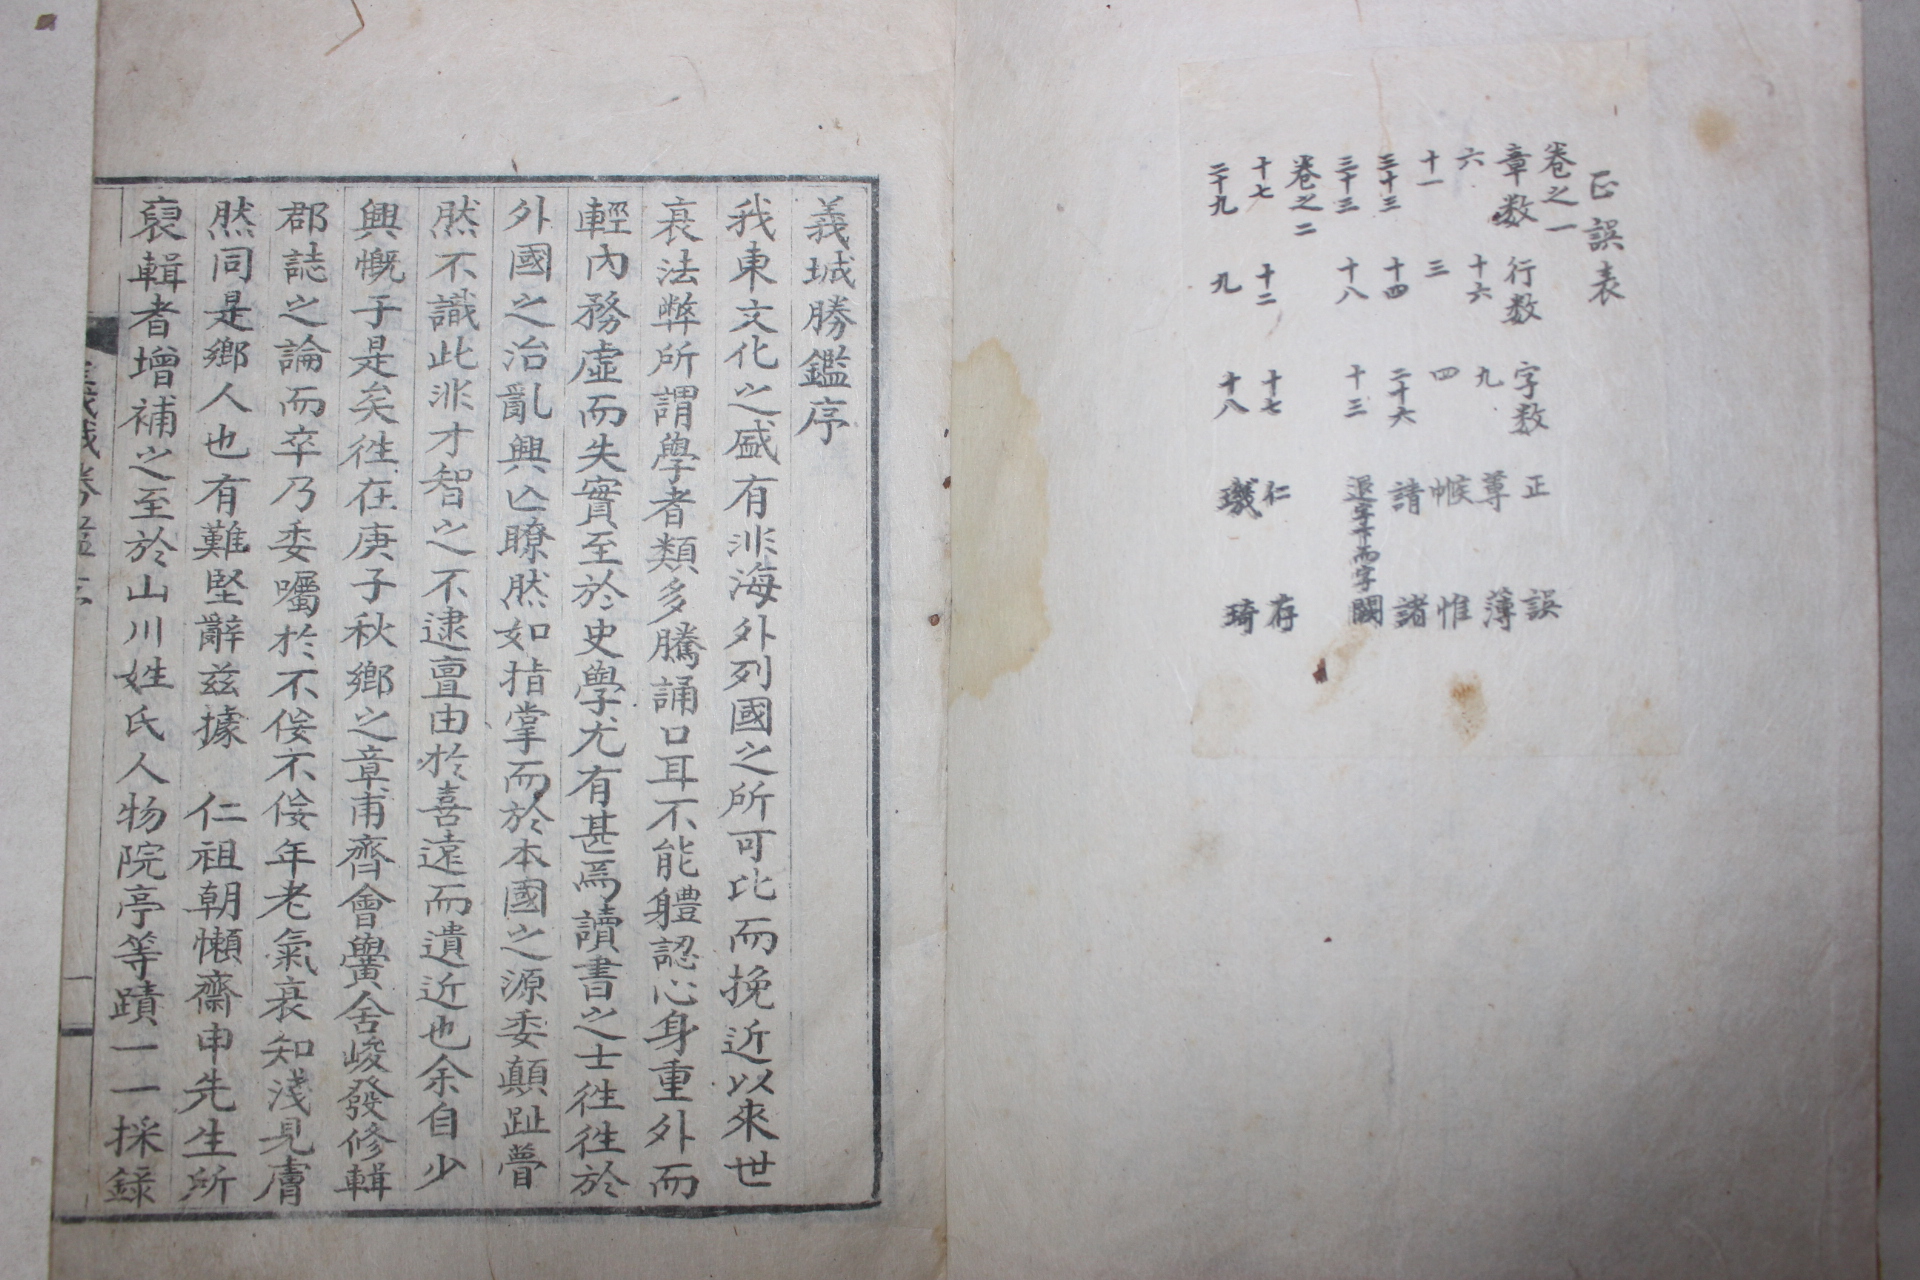 正誤表
卷之一
章数 行数 字数 正 誤
六 十六 九 尊 薄
十一 三 四 帿 惟
三十三 十四 二十六 請 諸
三十三 十八 十三 退字下而字 闕
卷之二
十七 十二 十七 仁 存
二十九 九 十八 璣 琦
義城勝鑑序
我東文化之盛有非海外列國之所可比而挽近以來世
衰法弊所謂學者類多騰誦口耳不能軆認心身重外而
輕內務虛而失實至於史學尤有甚焉讀書之士徃徃於
外國之治亂興亾瞭然如指掌而於本國之源委顛趾瞢
然不識此非才智之不逮亶由於喜遠而遺近也余自少
興慨于是矣徃在庚子秋鄉之章甫齊會黌舍峻發修輯
郡誌之論而卒乃委囑於不佞不佞年老氣衰知淺見膚
然同是鄉人也有難堅辭兹據 仁祖朝懶齋申先生所
裒輯者增補之至於山川姓氏人物院亭等蹟一一採錄
一